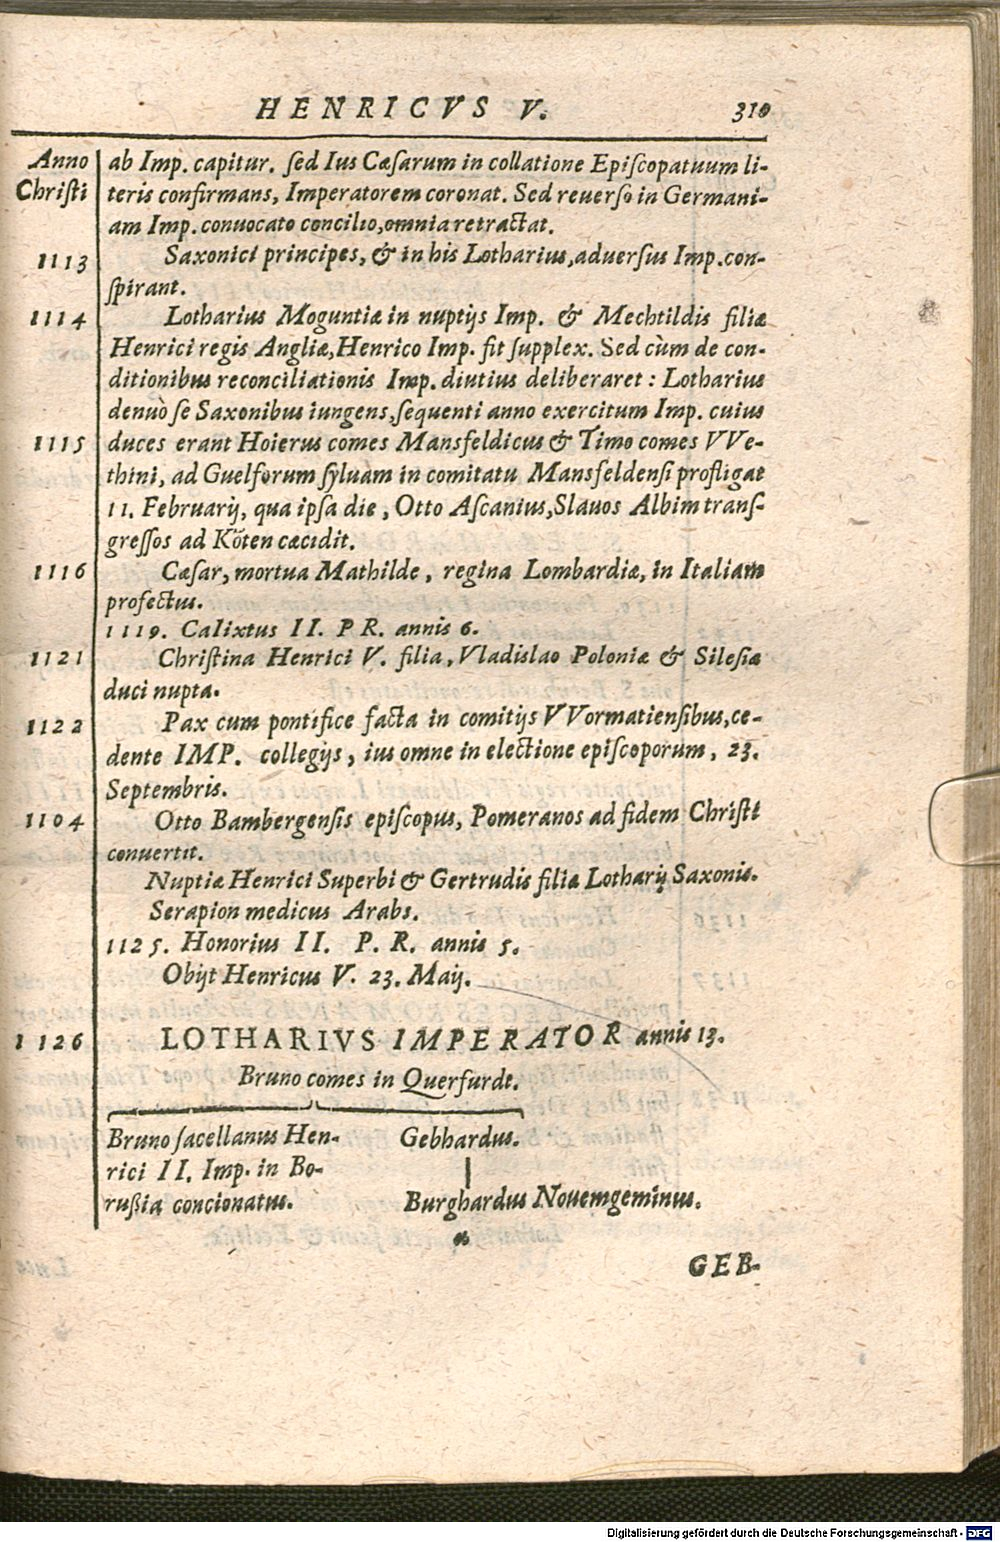 HENRICVS V. 310
Anno ab Imp. capitur. ſed Ius Cæſarum in collatione Epiſcopatuum li-
Chriſti teris confirmans, Imperatorem coronat. Sed reuerſo in Germani-
am Imp. conuocato concilio, omnia retractat.
1113 Saxonici principes, & in his Lotharius, aduerſus Imp. con-
ſpirant.
1114 Lotharius Moguntiæ in nuptijs Imp. & Mechtildis filiæ
Henrici regis Angliæ, Henrico Imp. fit ſupplex. Sed cùm de con-
ditionibus reconciliationis Imp. diutius deliberaret: Lotharius
denuò ſe Saxonibus iungens, ſequenti anno exercitum Imp. cuius
1115 duces erant Hoierus comes Mansfeldicus & Timo comes VVe-
thini, ad Guelforum ſyluam in comitatu Mansfeldenſi profligat
11. Februarij, qua ipſa die, Otto Aſcanius, Slauos Albim transſ-
greſſos ad Köten cæcidit.
1116 Cæſar, mortua Mathilde, regina Lombardiæ, in Italiam
profectus.
1119. Calixtus II. P R. annis 6.
1121 Chriſtina Henrici V. filia, Vladislao Poloniæ & Sileſiæ
duci nupta.
1122 Pax cum pontifice facta in comitijs VVormatienſibus, ce-
dente IMP. collegijs, ius omne in electione epiſcoporum, 23.
Septembris.
1104 Otto Bambergenſis epiſcopus, Pomeranos ad fidem Chriſti
conuertit.
Nuptiæ Henrici Superbi & Gertrudis filiæ Lotharij Saxonis.
Serapion medicus Arabs.
1125. Honorius II. P. R. annis 5.
Obijt Henricus V. 23. Maij.
1126 LOTHARIVS IMPERATOR annis 13.
Bruno comes in Querfurdt.
Bruno ſacellanus Hen- Gebhardus.
rici II. Imp. in Bo-
rußia concionatus. Burghardus Nouemgeminus.
GEB-
Digitalisierung gefördert durch die Deutsche Forschungsgemeinschaft - DFG